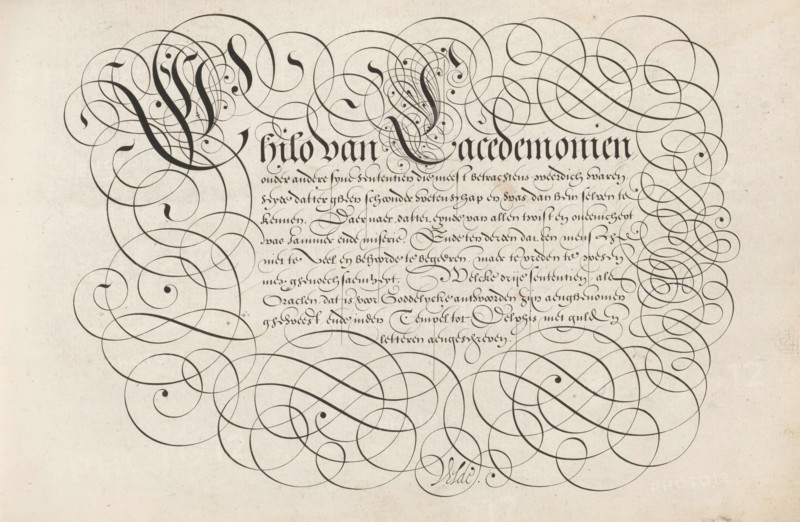 Chilo van Lacedemonien
onder andere syne Sententien die meest betrachtens weerdich waren,
seyde datter gheen schoonder wetenschap en was dan hem selven te
kennen. Daer naer, datter eynde van allen twist en oneenicheyt
was Jammer ende miserie. Ende ten derden dat den mensche
niet te veel en behoorde te begeeren, maer te vreden te wesen
met ghenoechsaemheyt. Welcke drije sententien als
Oraclen, dat is voor Goddelycke antwoorden zijn aenghenomen
gheweest, ende inden Tempel tot Delphis met gulden
letteren aengeschreven.
Velde.